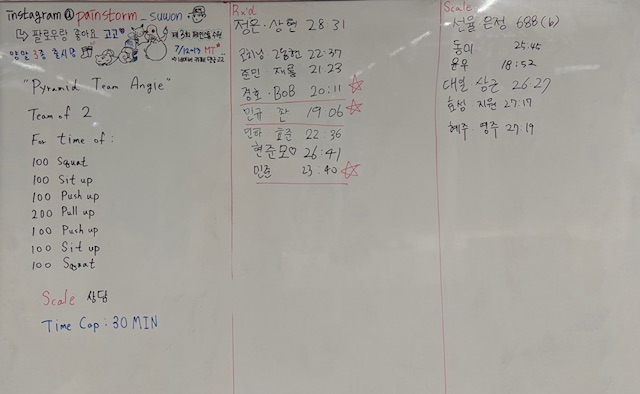 instagram@painstorm_suwon
팔로우랑 좋아요 고고
양말 3종 출시중
7/12-13 MT
"Pyramid Team Angle"
Team of 2
For time of :
100 Squat
100 Sit up
100 Push up
200 Pull up
100 Push up
100 Sit up
100 Squat
Scale 상담
Time Cap : 30 MIN
Rx'd
정은 · 상현 28:31
22:37
준민 · 재룡 21:23
경호 · BOB 20:11
민규 19:06
효준 22:36
현준모♡ 26:41
민준 23:40
Scale
선율 은정 688(b)
동이 25:45
윤우 18:52
대일 상근 26:27
효성 지원 27:17
혜주 영주 27:19